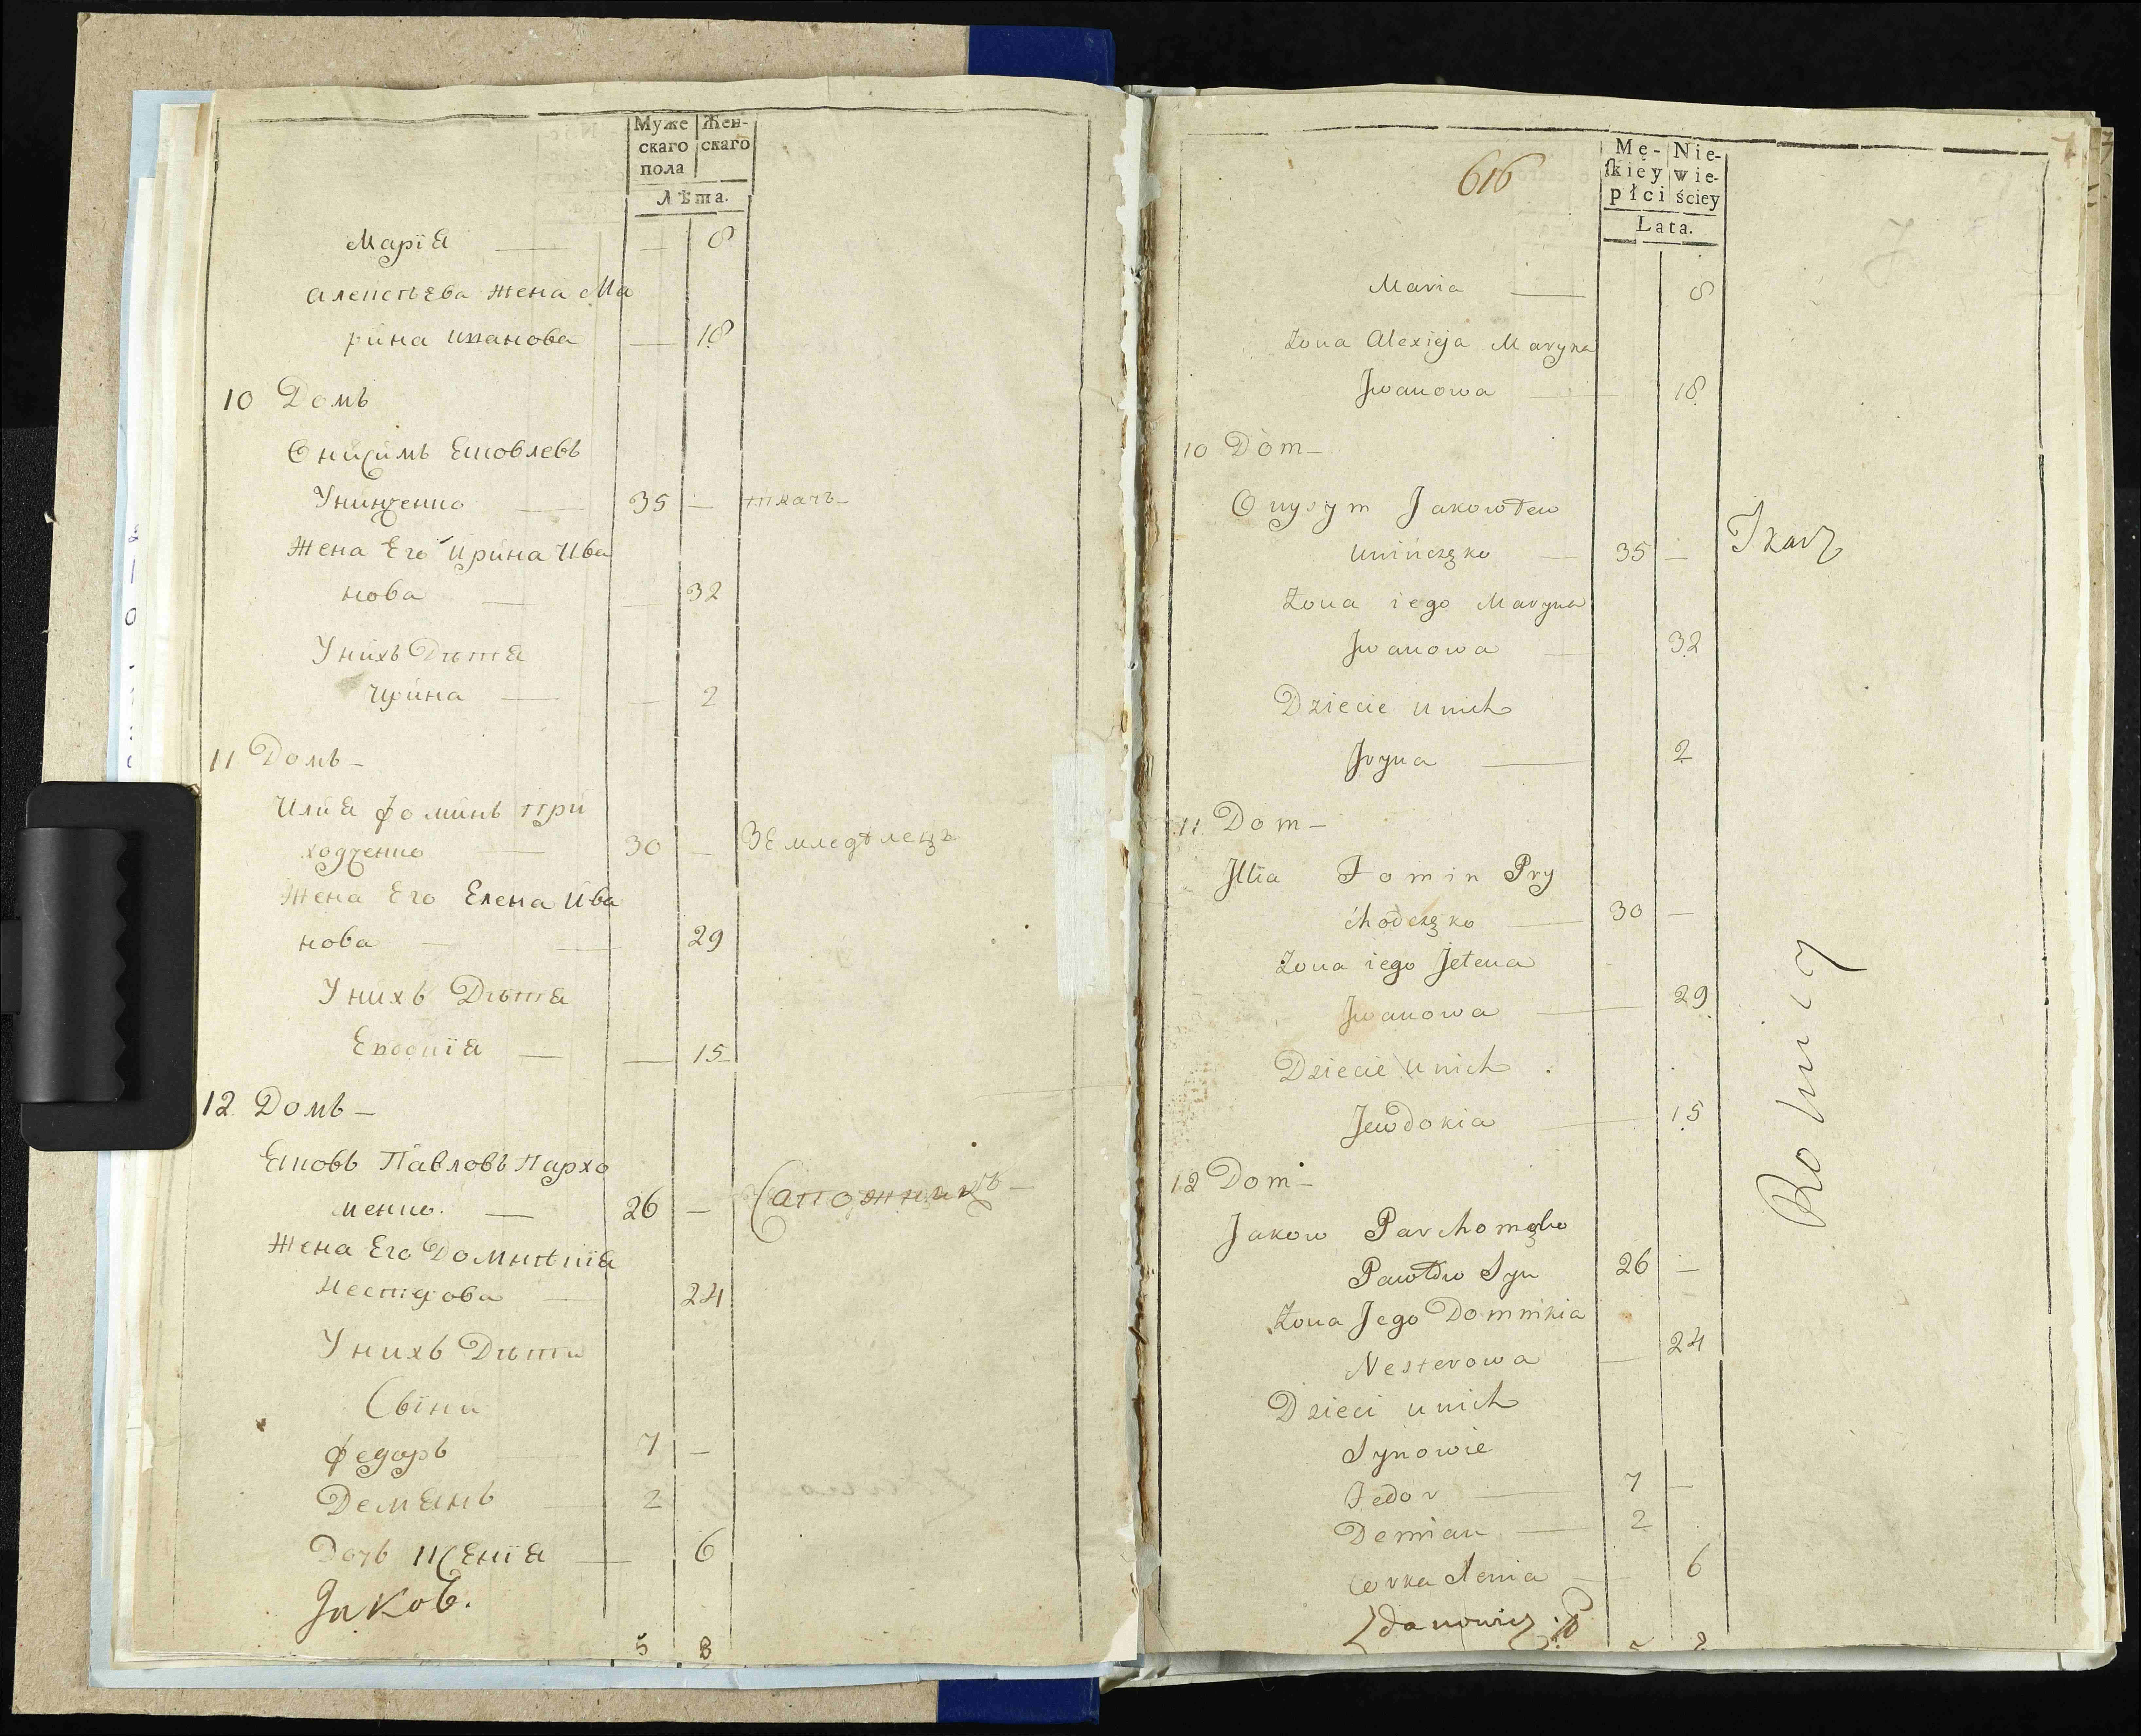 Муже Жен-
скаго скаго
пола
Лѣта.
Марїя — — 8
Алеѯѣева жена Ма
рина Иванова — 18
10 Домъ
Онисимъ Яковлевъ
Унинченко — 35 — ткачъ —
Жена Его Ирина Ива
нова — — 32
Унихъ Дитя
Ирина — — 2
11 Домъ —
Илия Фоминъ При
ходченко — 30 — Земледѣлецъ
Жена Его Елена Ива
нова — — 29
Унихъ Дѣтя
Евдокїя — — 15
12 Домъ —
Яковъ Павловъ Пархо
менко. — 26 — Сапожникъ —
Жена Его Домникїя
Нестерова — 24
Унихъ Дѣти
Сыни
Федоръ 7 —
Демянъ 2
Дочь Ксенїя — 6
Яков.
5 8
616
Mę- Nie-
ſkiey wie-
płci ściey
Lata.
Maria — 8
Żona Alexieja Maryna
Jwanowa — 18
10 Dom —
Onysym Jakowłew
Unińczęko — 35 — Tkacz
Żona iego Maryna
Jwanowa — 32
Dziecie unich
Jryna — 2
11 Dom —
Jllia Fomin Pry
chodczęko — 30 —
Żona iego Jełena
Jwanowa — 29
Dziecie unich
Jewdokia — 15
Rolnicy
12 Dom —
Jakow
Pawłow Syn 26 —
Żona Jego Domnikia
Nesterowa — 24
Dzieci unich
Synowie
Fedor — 7 —
Demian — 2
Corka — 6
Zdanowicz